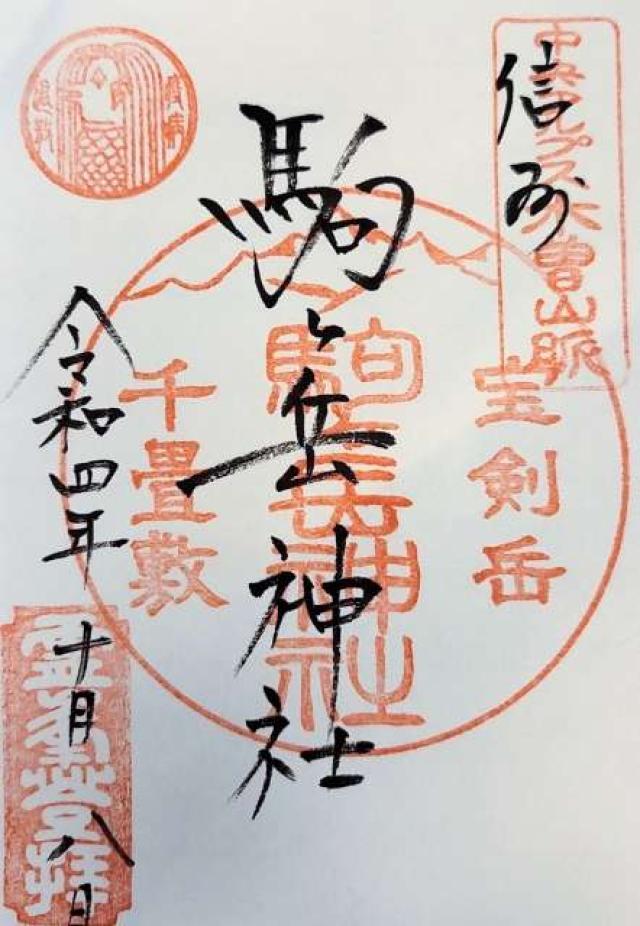 中央アルプス木曽山脈
信州
宝剣岳
駒ヶ岳神社
駒ヶ岳神社
千畳敷
令和四年十月八日
登拝